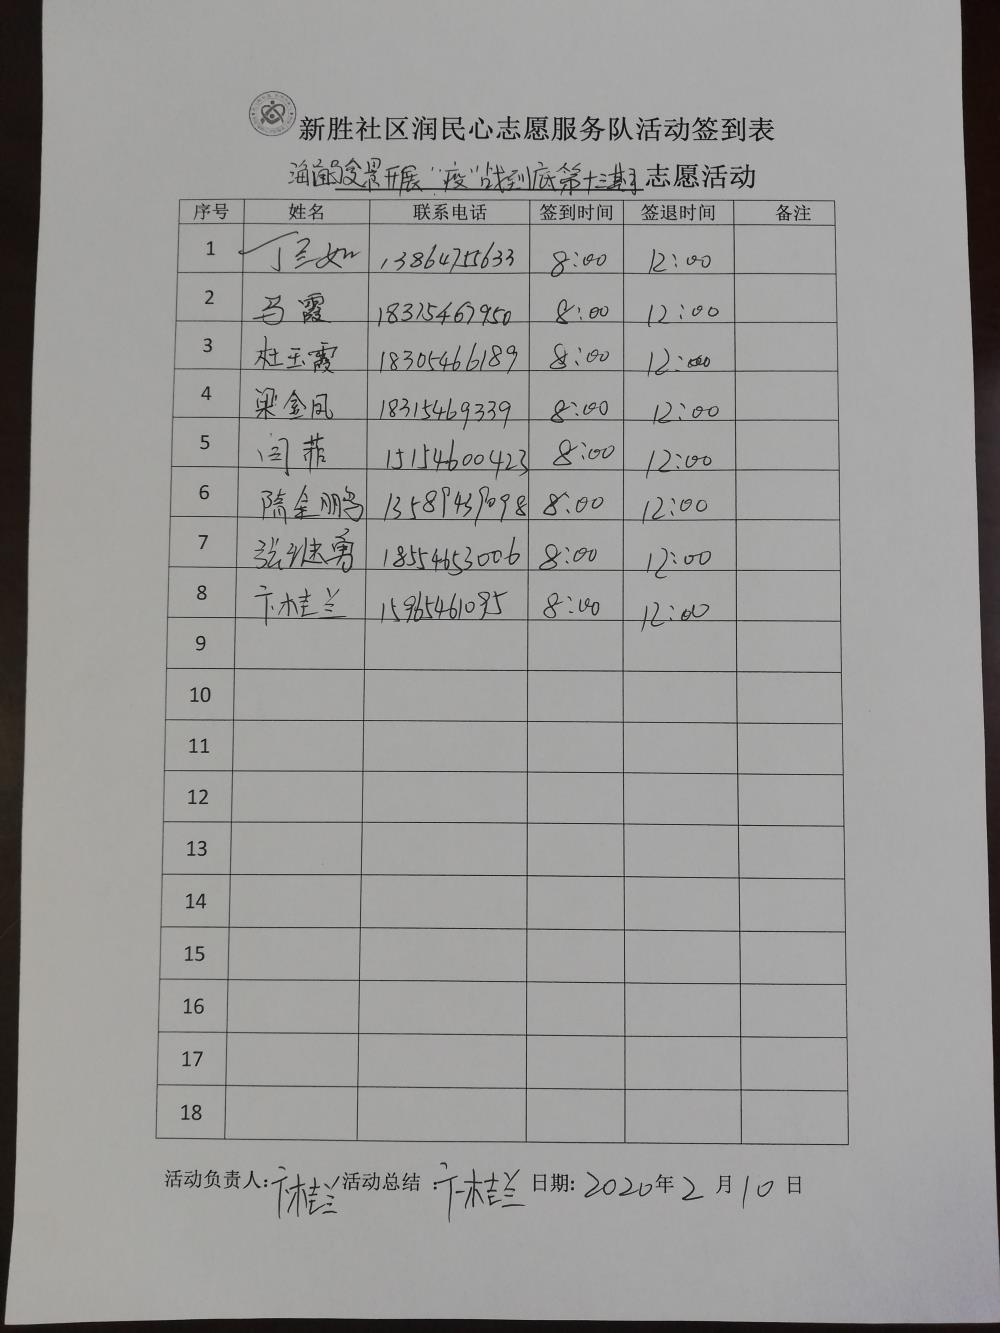 新胜社区润民心志愿服务队活动签到表
开展“疫”战到底第十三期 志愿活动
序号 姓名 联系电话 签到时间 签退时间 备注
1 丁兰如 13864755633 8:00 12:00
2 马霞 18375467950 8:00 12:00
3 杜玉霞 18305466189 8:00 12:00
4 梁金凤 18315469339 8:00 12:00
5 闫菲 15154600423 8:00 12:00
6 隋金鹏 13589439098 8:00 12:00
7 张继勇 18554653006 8:00 12:00
8 卞桂兰 15965461095 8:00 12:00
9
10
11
12
13
14
15
16
17
18
活动负责人:卞桂兰 活动总结 :卞桂兰 日期: 2020年2月10日